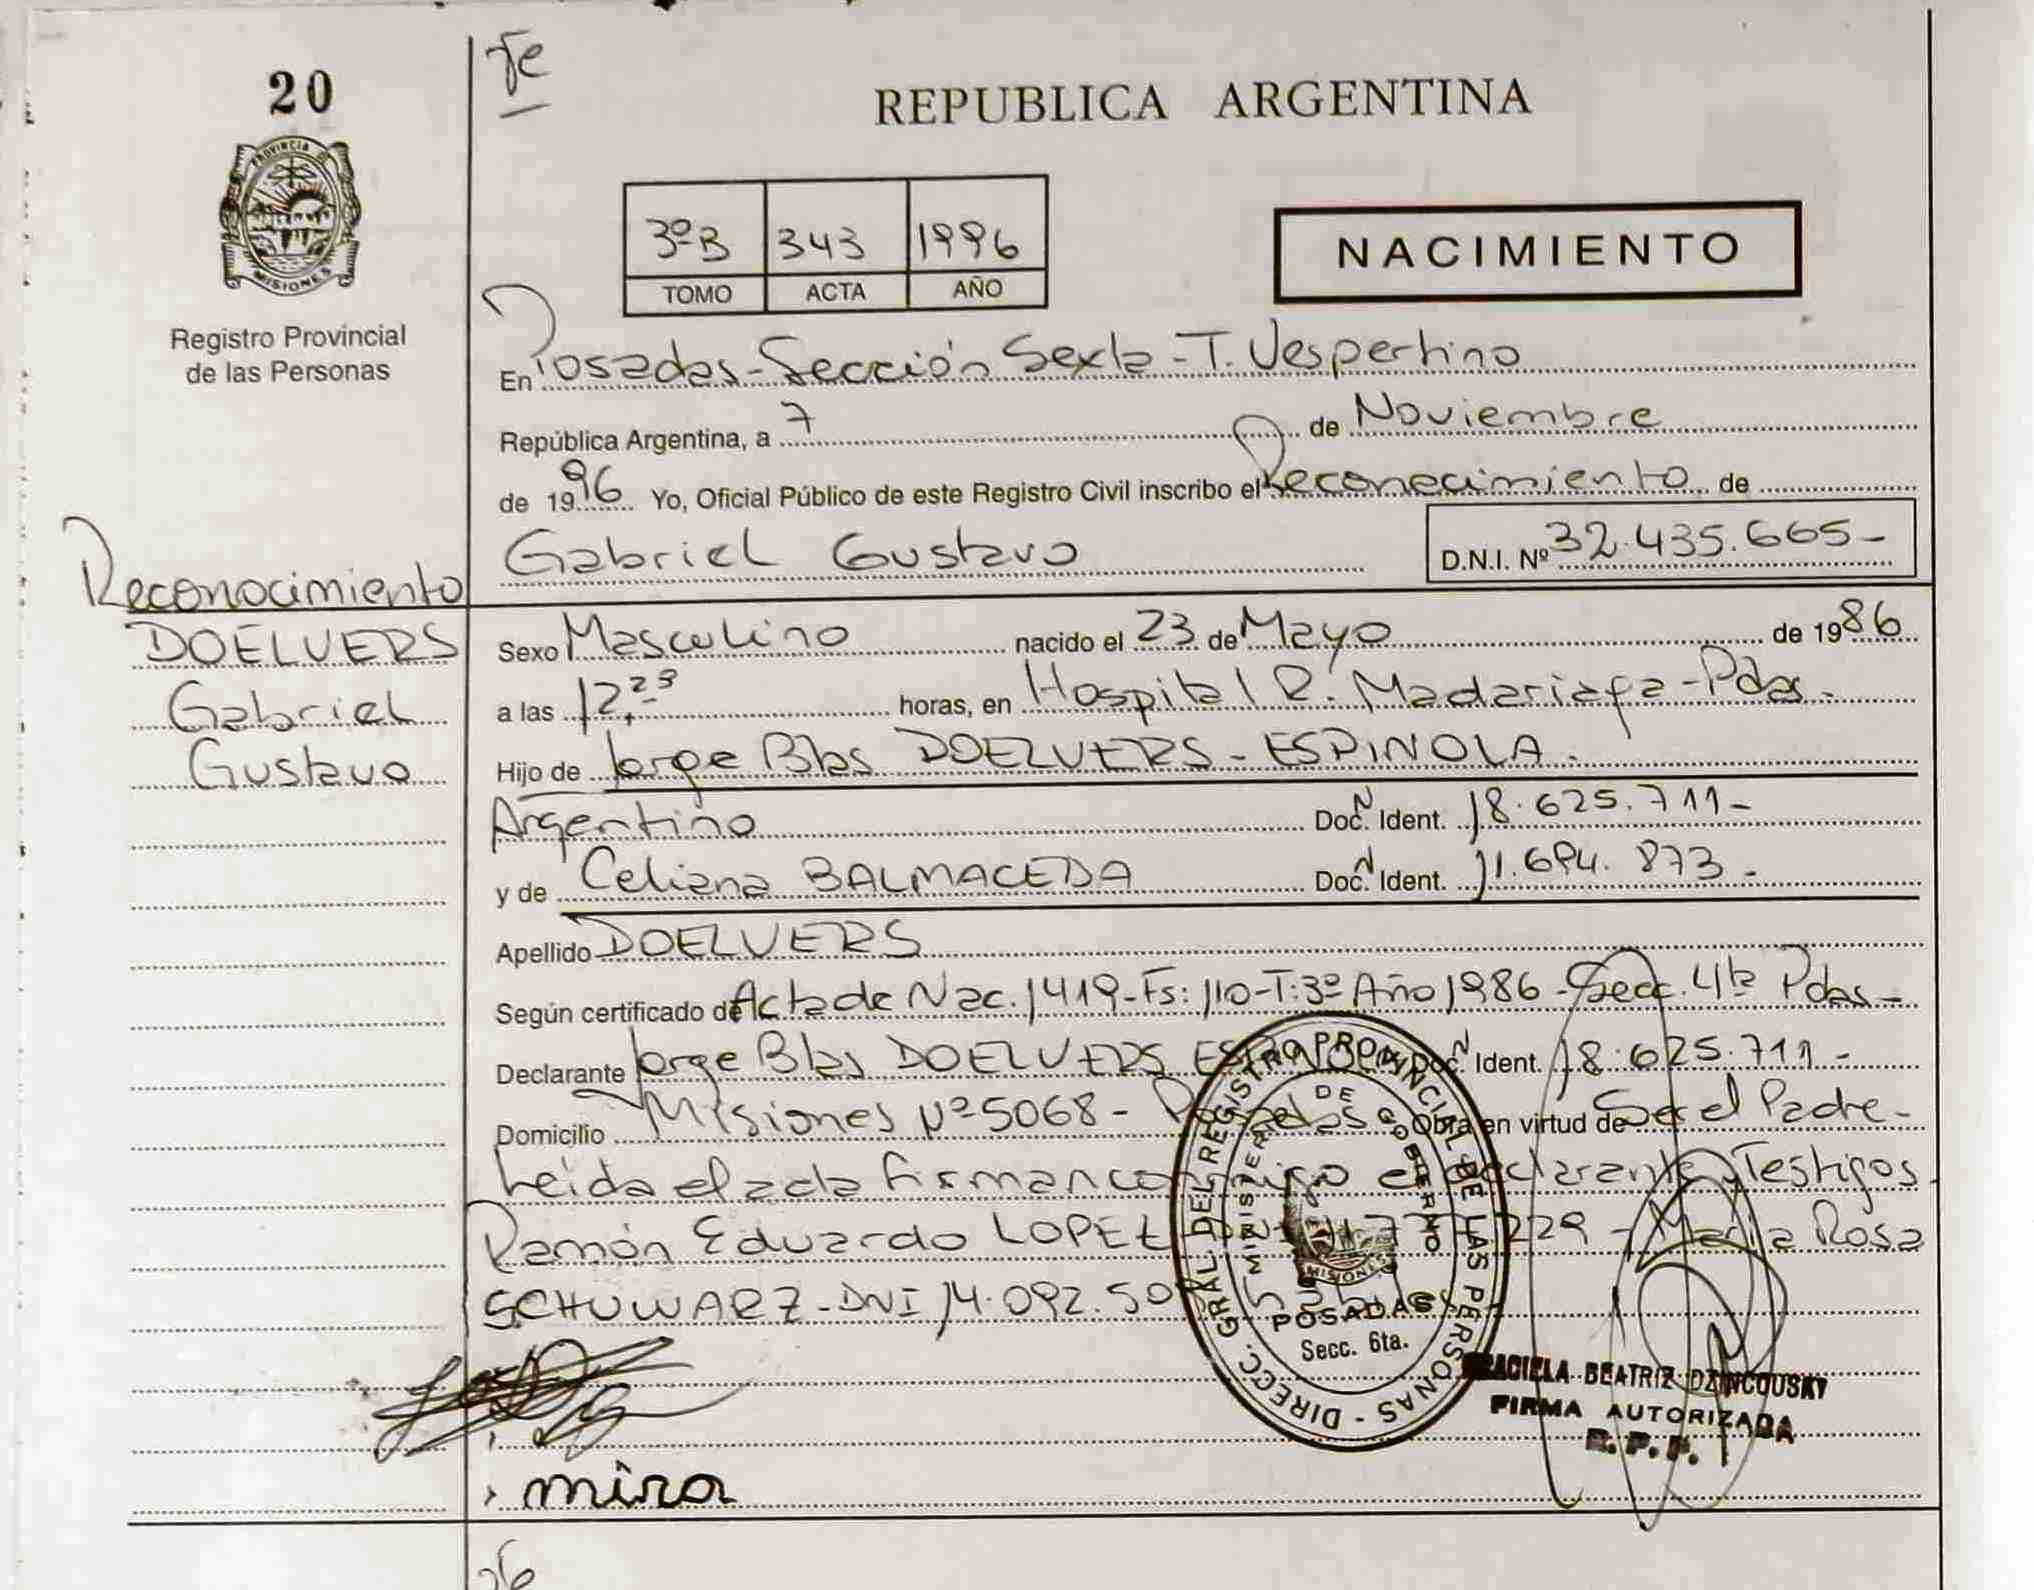 20
REPUBLICA ARGENTINA
PROVINCIA DE
MISIONES
Registro Provincial
de las Personas
3º B 343 1996
TOMO ACTA AÑO
NACIMIENTO
En Posadas - Sección Sexta - T. Vespertino
República Argentina, a 7 de Noviembre
de 1996 Yo, Oficial Público de este Registro Civil inscribo el Reconocimiento de
Gabriel Gustavo D.N.I. Nº 32.435.665-
Reconocimiento
DOELVERS
Gabriel
Gustavo
Sexo Masculino nacido el 23 de Mayo de 1986
a las 12,23 horas, en Hospital R. Madariaga - Pdas -
Hijo de Jorge Blas DOELVERS - ESPINOLA -
Argentino Doc. Ident. 18.625.711-
y de Celiana BALMACEDA Doc. Ident. 11.694.873-
Apellido DOELVERS
Según certificado de Acta de Nac. 1419 - Fs: 110 - T: 3º Año 1986 - Secc. 4ta Pdas -
Declarante Jorge Blas DOELVERS Doc. Ident. 18.625.711-
Domicilio Misiones Nº 5068 - Posadas Obra en virtud de Ser el Padre -
Leida el acta firman conmigo el declarante, Testigos
Ramón Eduardo LOPEZ 229 - María Rosa
SCHUWARZ - DNI 14.092.50
DIRECC. GRAL DEL REGISTRO PROVINCIAL DE LAS PERSONAS -
MINISTERIO DE GOBIERNO
MISIONES
POSADAS
Secc. 6ta.
GRACIELA BEATRIZ DZINCOUSKY
FIRMA AUTORIZADA
R. P. P.